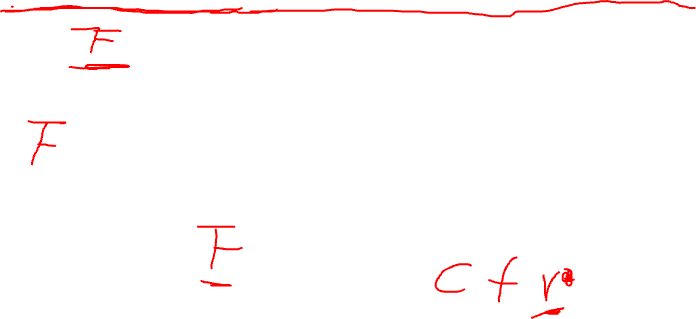 F
F
F
C f r